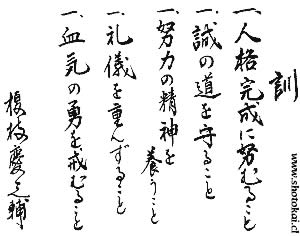 訓
一、人格完成に努むること
一、誠の道を守ること
一、努力の精神を
養うこと
一、礼儀を重んずること
一、血気の勇を戒むること
榎枝慶之輔
www.shotokai.cl